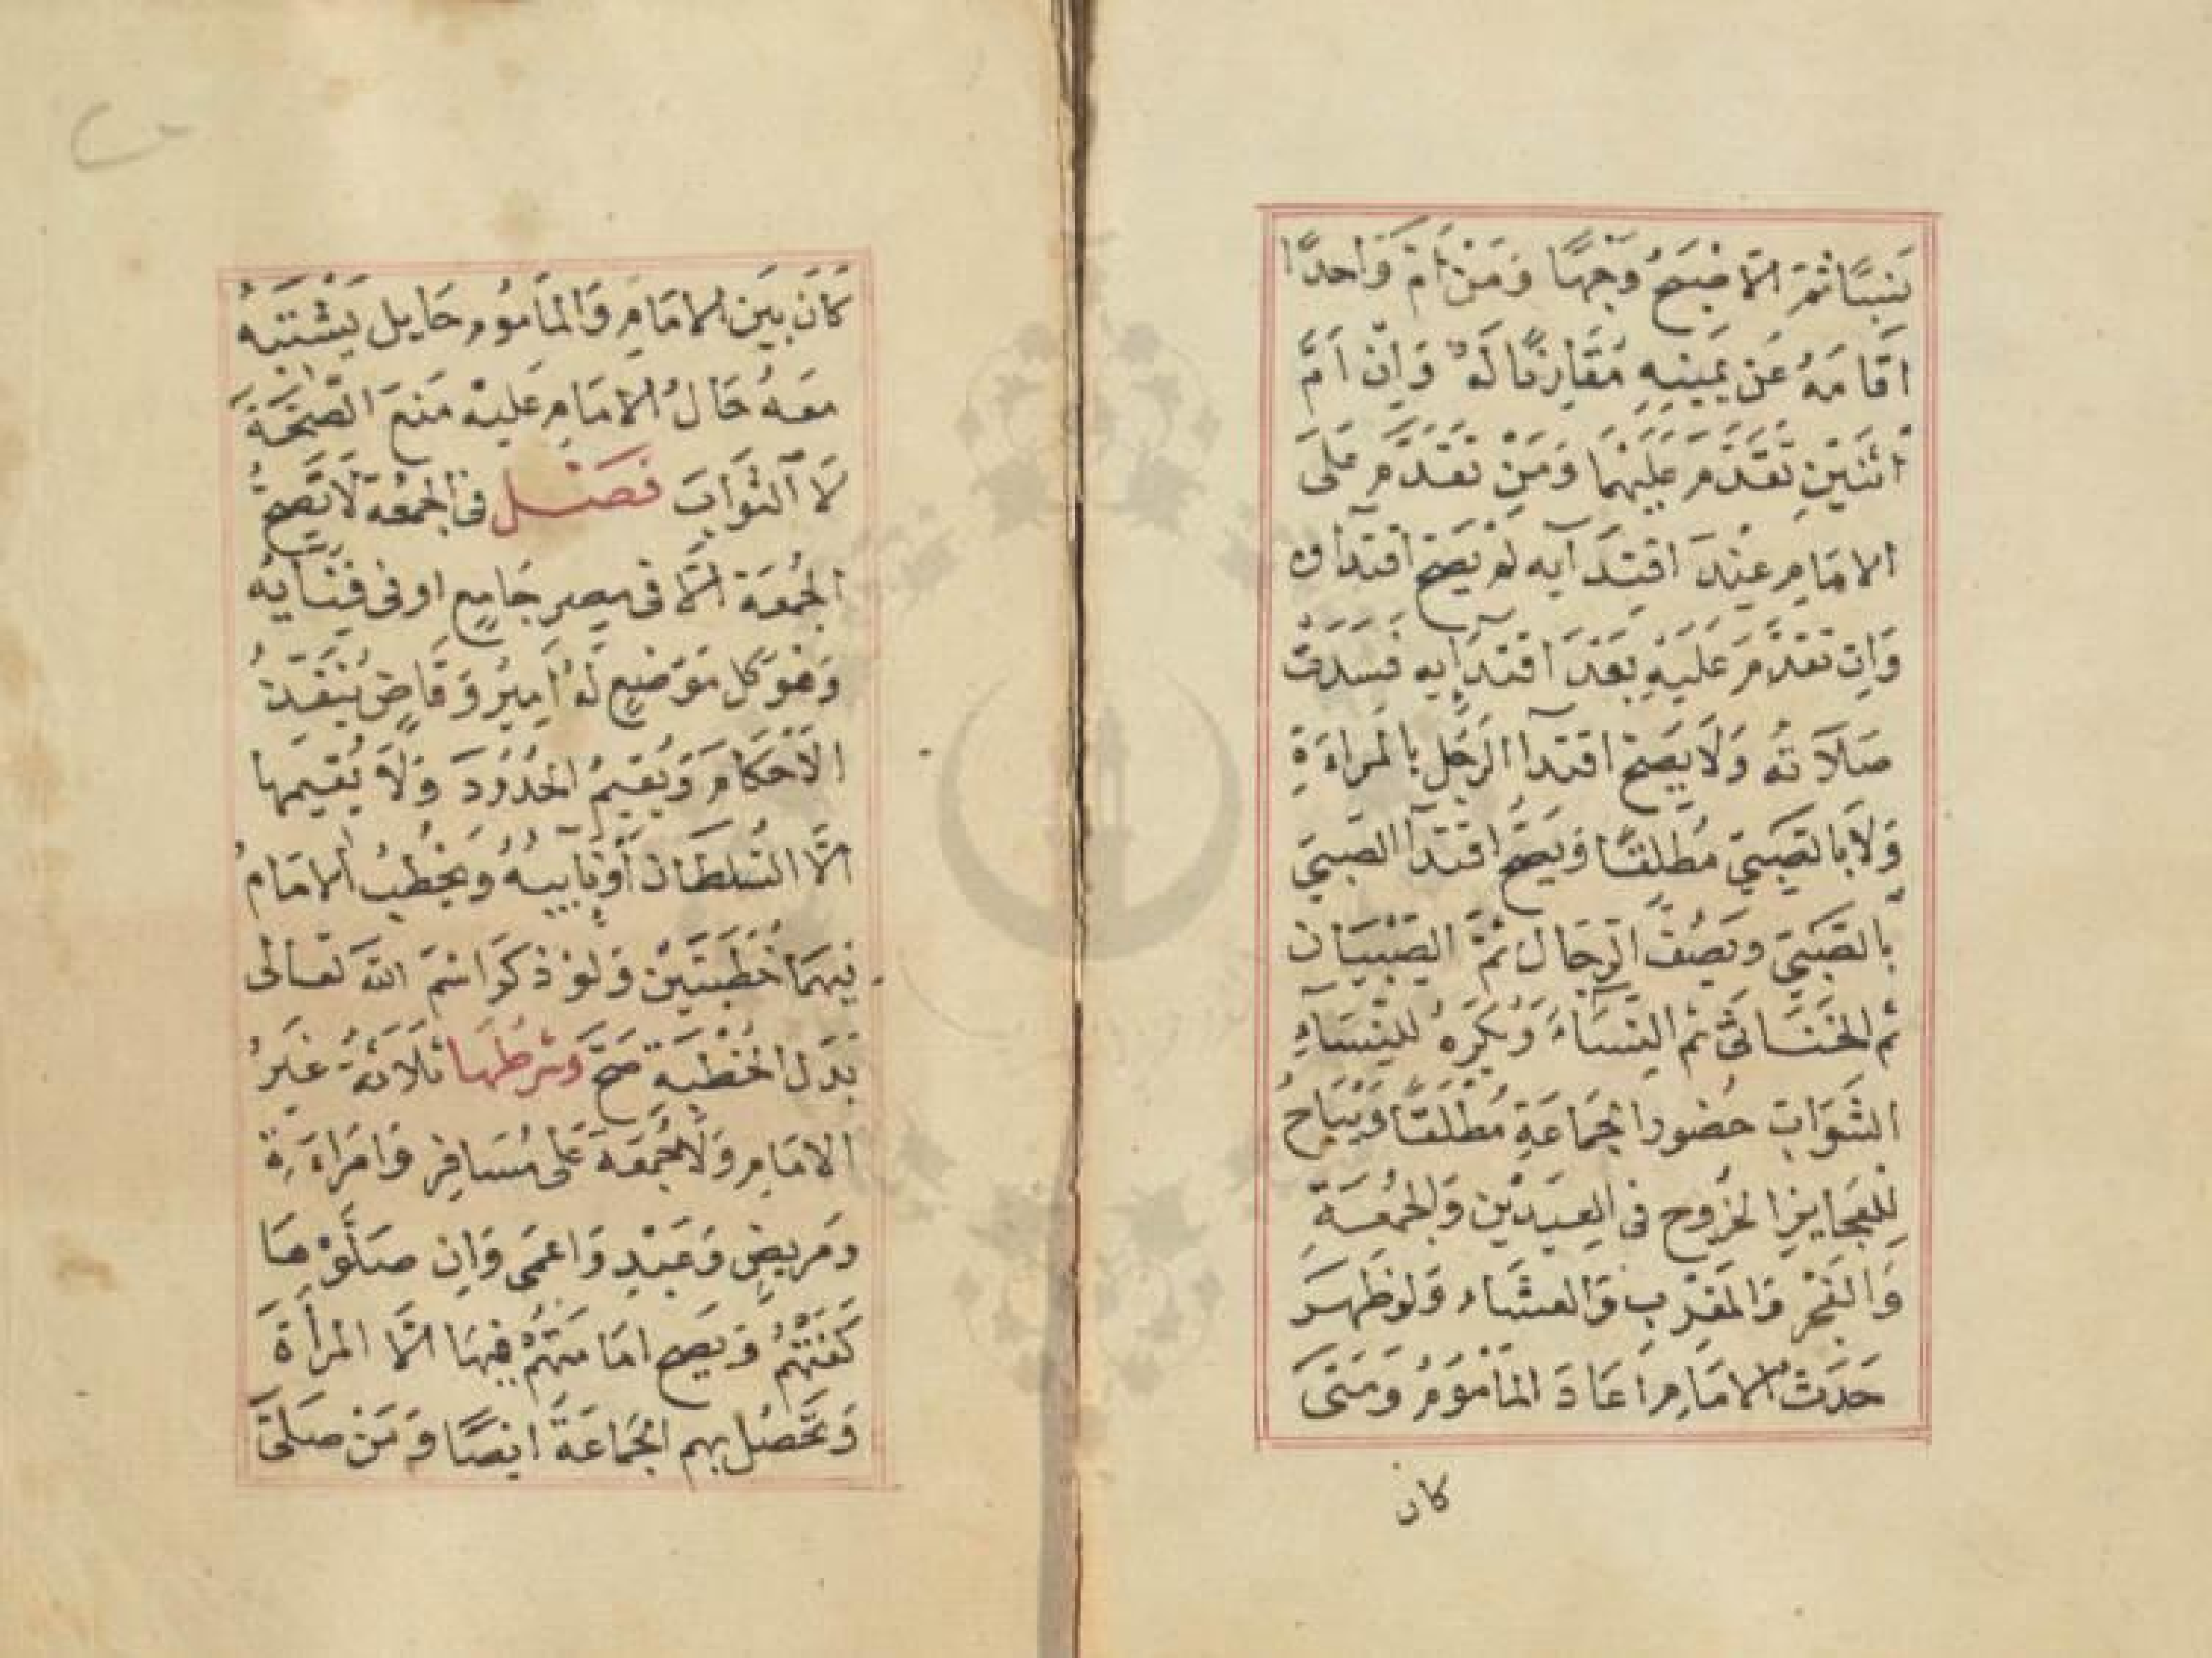 نسبًا ثم الاصبح وجهًا ومن أم واحدًا
اقامه عن يمينه مقارنًا له وان أم
اثنين تقدم عليهما ومن تقدم على
الامام عند اقتدآيه لم يصح اقتدآوه
وان تقدم عليه بعد اقتدآيه فسدت
صلاته ولا يصح اقتدآ الرجل بالمراءة
ولا بالصبي مطلقًا ويصح اقتدآ الصبي
بالصبي ويصف الرجال ثم الصبيان
ثم الخناثى ثم النسآء ويكره للنسآء
الشواب حضور الجماعة مطلقًا ويباح
للعجايز الخروج في العيدين والجمعة
والفجر والمغرب والعشاء ولو ظهر
حدث الامام اعاد المأموم ومتى
كان
كان بين الامام والمأموم حايل يشتبه
معه حال الامام عليه منع الصحة
لا الثواب فصل في الجمعة لا تصح
الجمعة الا في مصر جامع او في فنايه
وهو كل موضع له امير وقاض ينفذ
الأحكام ويقيم الحدود ولا يقيمها
الا السلطان أو نآيبه ويخطب الامام
فيهما خطبتين ولو ذكر اسم الله تعالى
بدل الخطبة صح وشرطها ثلاثة غير
الامام ولا جمعة على مسافر وامراءة
ومريض وعبد واعمى وان صلوها
كفتهم ويصح امامتهم فيها الا المرأة
وتحصل بهم الجماعة ايضًا ومن صلى